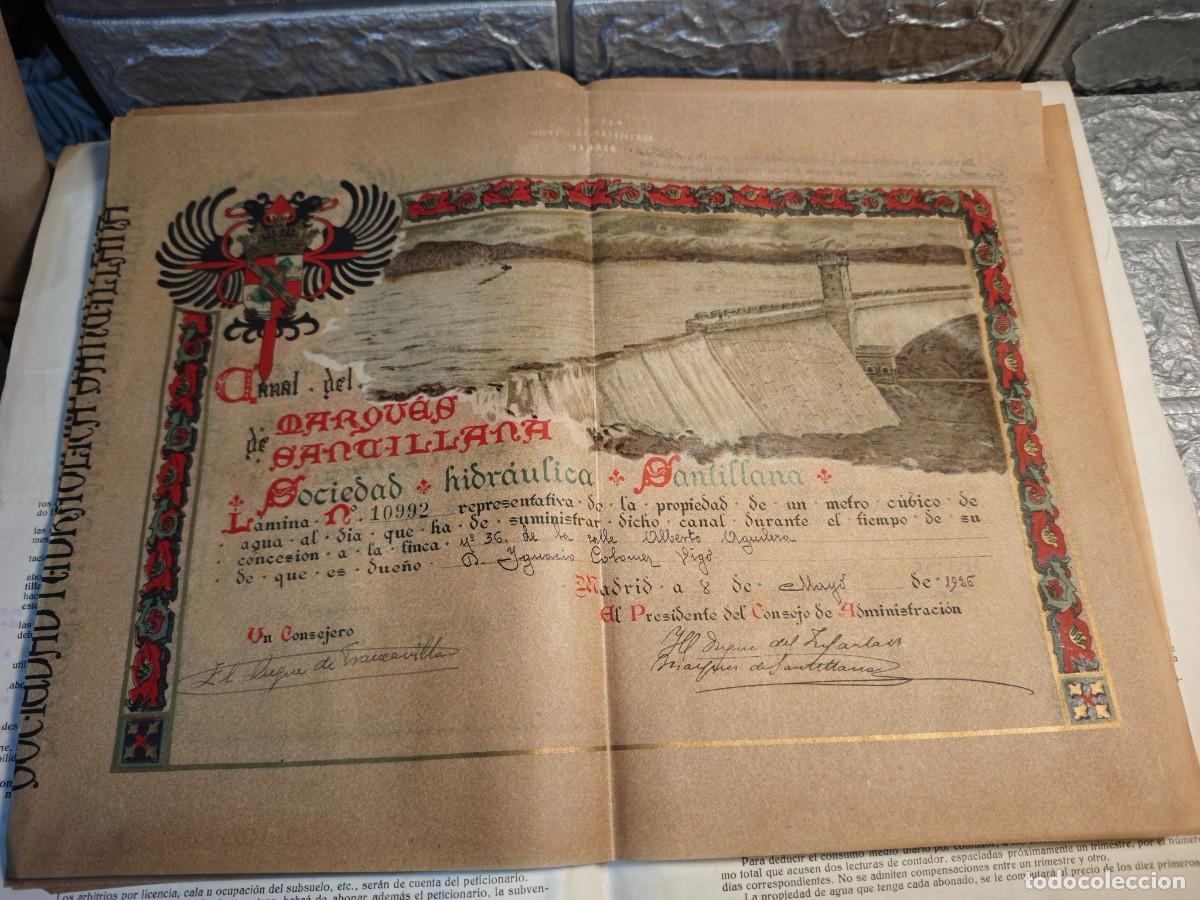 SOCIEDAD HIDRÁULICA SANTILLANA
MADRID
Canal · del ·
MARQUÉS
de SANTILLANA
Sociedad hidráulica Santillana
Lamina · Nº · 10992 representativa · de · la · propiedad · de · un · metro · cúbico · de
agua · al · dia · que · ha · de · suministrar · dicho · canal · durante · el · tiempo · de · su
concesion · a · la · finca · nº 36. de la calle Alberto Aguilera
de · que · es · dueño · D. Ignacio Colomer Vigó
Madrid · a 8 de · Mayo de · 1926
El Presidente del Consejo de Administración
Un Consejero
El Duque de Francavilla
El Duque del Infantado
Marques de Santillana
Los arbitrios por licencia, cala u ocupación del subsuelo, etc., serán de cuenta del peticionario.
habrá de abonar además el peticionario, la subven-
Para deducir el consumo medio diario por contador,
mo total que acusen dos lecturas de contador, espaciadas próximamente un trimestre, por el número
días correspondientes. No se admiten compensaciones entre un trimestre y otro.
La propiedad de agua que tenga cada abonado, se le computará al precio de los diez primeros
todocoleccion